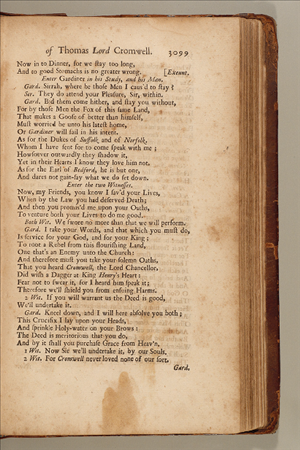 of Thomas Lord Cromwell. 3099
Now in to Dinner, for we stay too long,
And to good Stomachs is no greater wrong. [Exeunt.
Enter Gardiner in his Study, and his Man.
Gard. Sirrah, where be those Men I caus'd to stay?
Ser. They do attend your Pleasure, Sir, within.
Gard. Bid them come hither, and stay you without,
For by those Men the Fox of this same Land,
That makes a Goose of better than himself,
Must worried be unto his latest home,
Or Gardiner will fail in his intent.
As for the Dukes of Suffolk and of Norfolk,
Whom I have sent for to come speak with me;
Howsoever outwardly they shadow it,
Yet in their Hearts I know they love him not,
As for the Earl of Bedford, he is but one,
And dares not gain-say what we do set down.
Enter the two Witnesses.
Now, my Friends, you know I sav'd your Lives,
When by the Law you had deserved Death;
And then you promis'd me upon your Oaths,
To venture both your Lives to do me good.
Both Wit. We swore no more than that we will perform.
Gard. I take your Words, and that which you must do,
Is service for your God, and for your King;
To root a Rebel from this flourishing Land,
One that's an Enemy unto the Church:
And therefore must you take your solemn Oaths,
That you heard Cromwell, the Lord Chancellor,
Did wish a Dagger at King Henry's Heart:
Fear not to swear it, for I heard him speak it;
Therefore we'll shield you from ensuing Harms.
2 Wit. If you will warrant us the Deed is good,
We'll undertake it.
Gard. Kneel down, and I will here absolve you both;
This Crucifix I lay upon your Heads,
And sprinkle Holy-water on your Brows:
The Deed is meritorious that you do,
And by it shall you purchase Grace from Heav'n.
1 Wit. Now Sir we'll undertake it, by our Souls.
2 Wit. For Cromwell never loved none of our sort.
Gard.